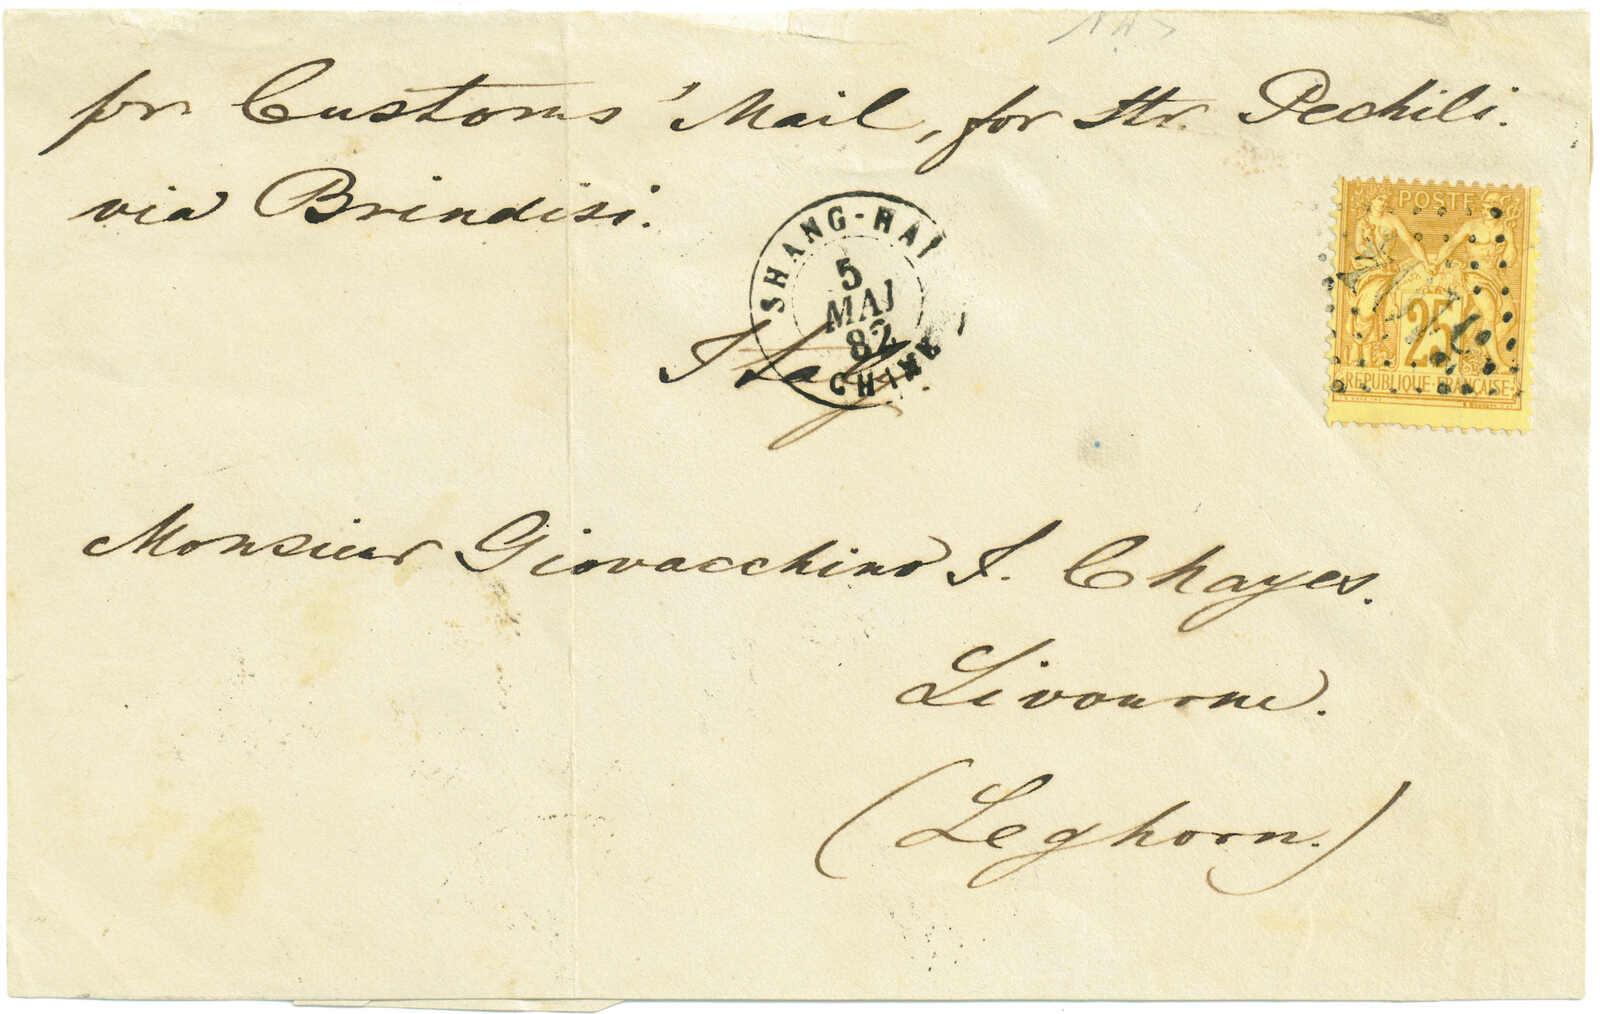 pr. Customs' Mail, for Str. Pechili.
via Brindisi.
SHANG-HAI
5
MAI
82
CHINE
Italy.
POSTE
25
REPUBLIQUE FRANÇAISE
Monsieur Giovacchino J. Chayes.
Livourne.
(Leghorn.)